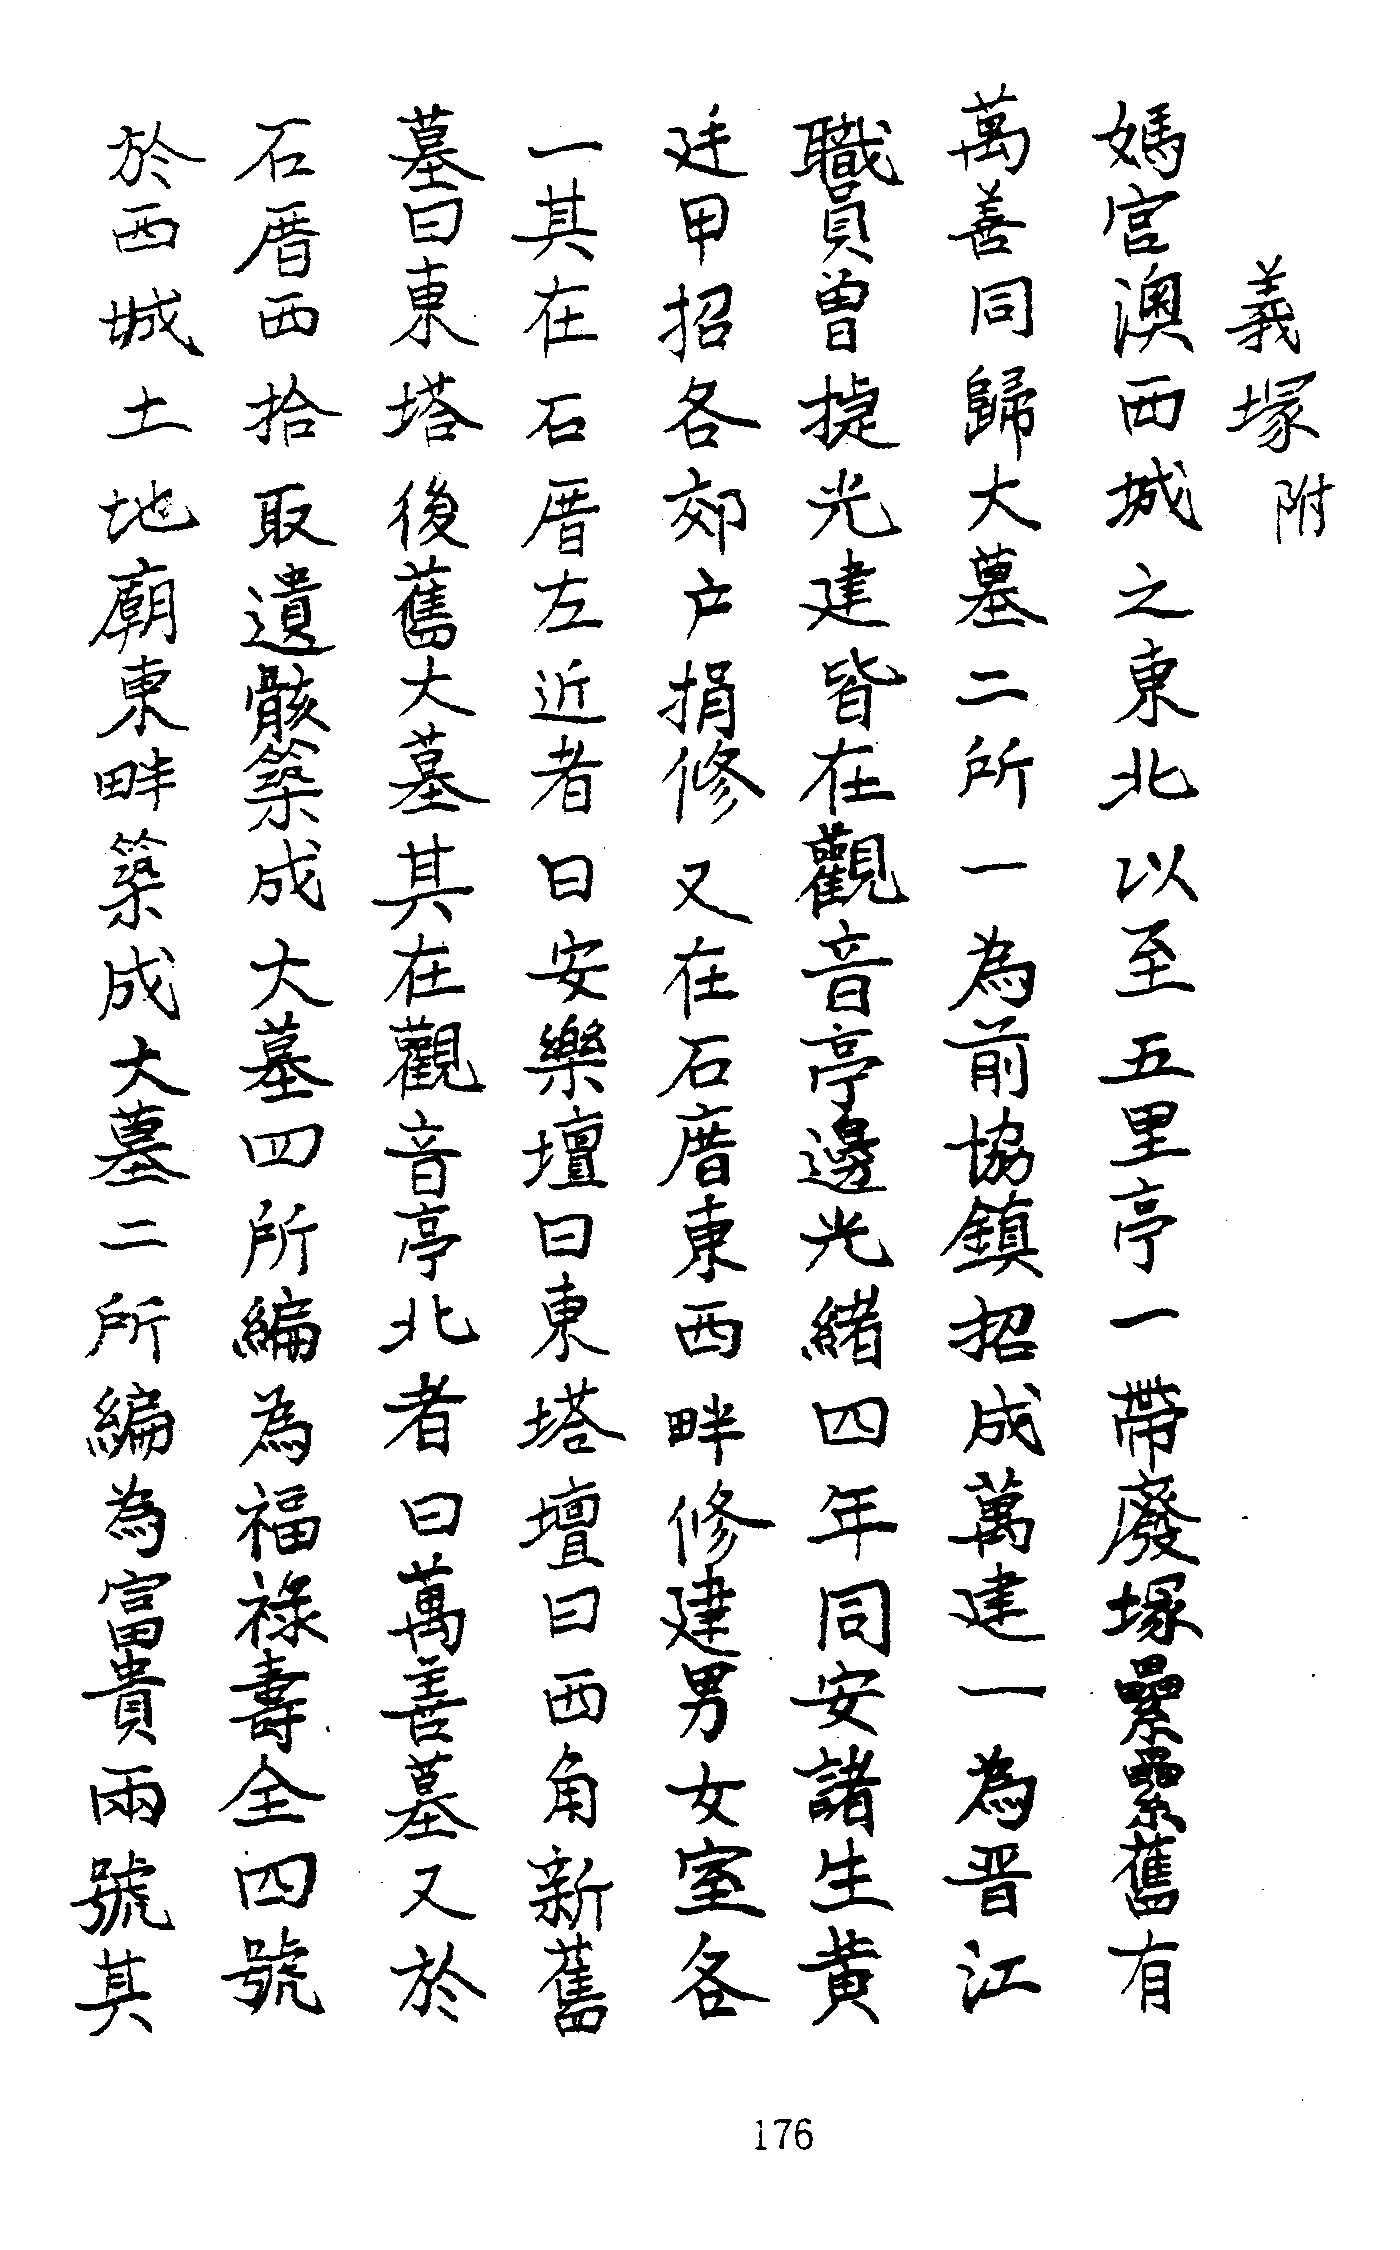 義塚附
媽宮澳西城之東北以至五里亭一帶廢塚纍纍舊有
萬善同歸大墓二所一為前協鎮招成萬建一為晋江
職員曾捷光建皆在觀音亭邊光緒四年同安諸生黃
廷甲招各郊户捐修又在石厝東西畔修建男女室各
一其在石厝左近者曰安樂壇曰東塔壇曰西角新舊
墓曰東塔後舊大墓其在觀音亭北者曰萬善墓又於
石厝西拾取遺骸築成大墓四所編為福祿壽全四號
於西城土地廟東畔築成大墓二所編為富貴兩號其
176